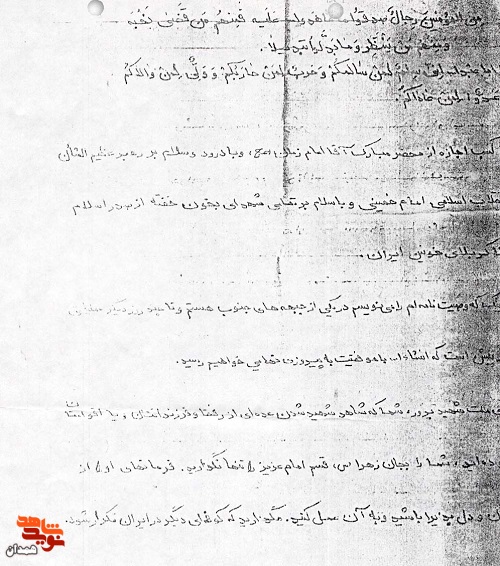 من المؤمنین رجال صدقوا ما عاهدوا الله علیه فمنهم من قضی نحبه
ومنهم من ینتظر وما بدلوا تبدیلا.
سالمکم و حرب لمن حاربکم و ولی لمن والاکم
عدو لمن عاداکم
کسب اجازه از محضر مبارک آقا امام زمان (عج)، وبا درود وسلام بر رهبر عظیم الشأن
انقلاب اسلامی امام خمینی و باسلام بر تمامی شهدای بخون خفته از صدر اسلام
تا کربلای خونین ایران.
که وصیت نامه ام را می نویسم در یکی از جبهه های جنوب هستم و تا چند روز دیگر
پیش است که انشاءالله با موفقیت به پیروزی نهایی خواهیم رسید.
ملت شهید پرور، شما که شاهد شهید شدن عده ای از رفقا و فرزندانتان و یا اقوامتان
بوده اید، شما را بجان زهرا (س) قسم امام عزیز را تنها نگذارید. فرمانهای او را از
جان و دل پذیرا باشید و به آن عمل کنید. مگذارید که کوفه ای دیگر در ایران تکرار شود.
نوید شاهد
همدان